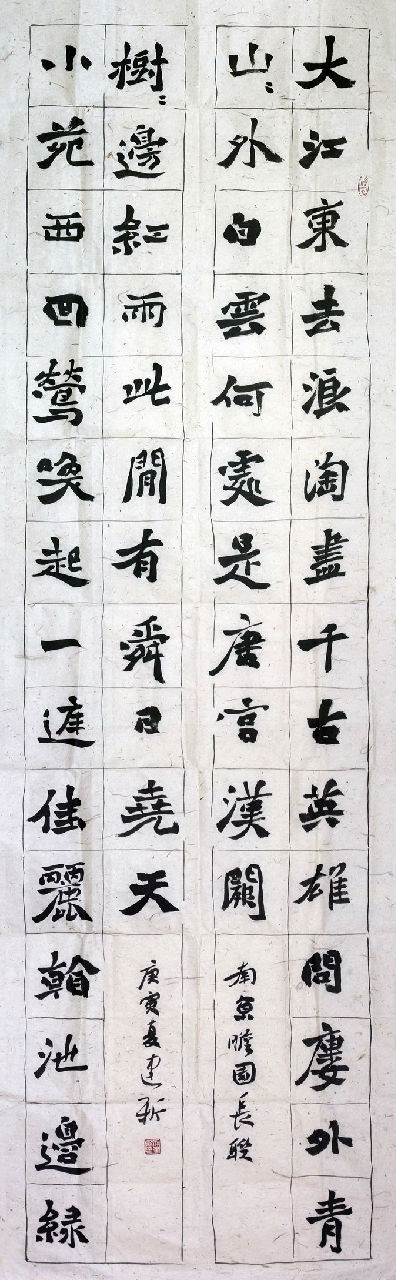 大江東去浪淘盡千古英雄問廔外青
山〻外白雲何處是唐宮漢闕
南京瞻園長聯
小苑西回鶯喚起一庭佳麗看池邊緑
樹〻邊紅雨此閒有舜日堯天
庚寅夏建新